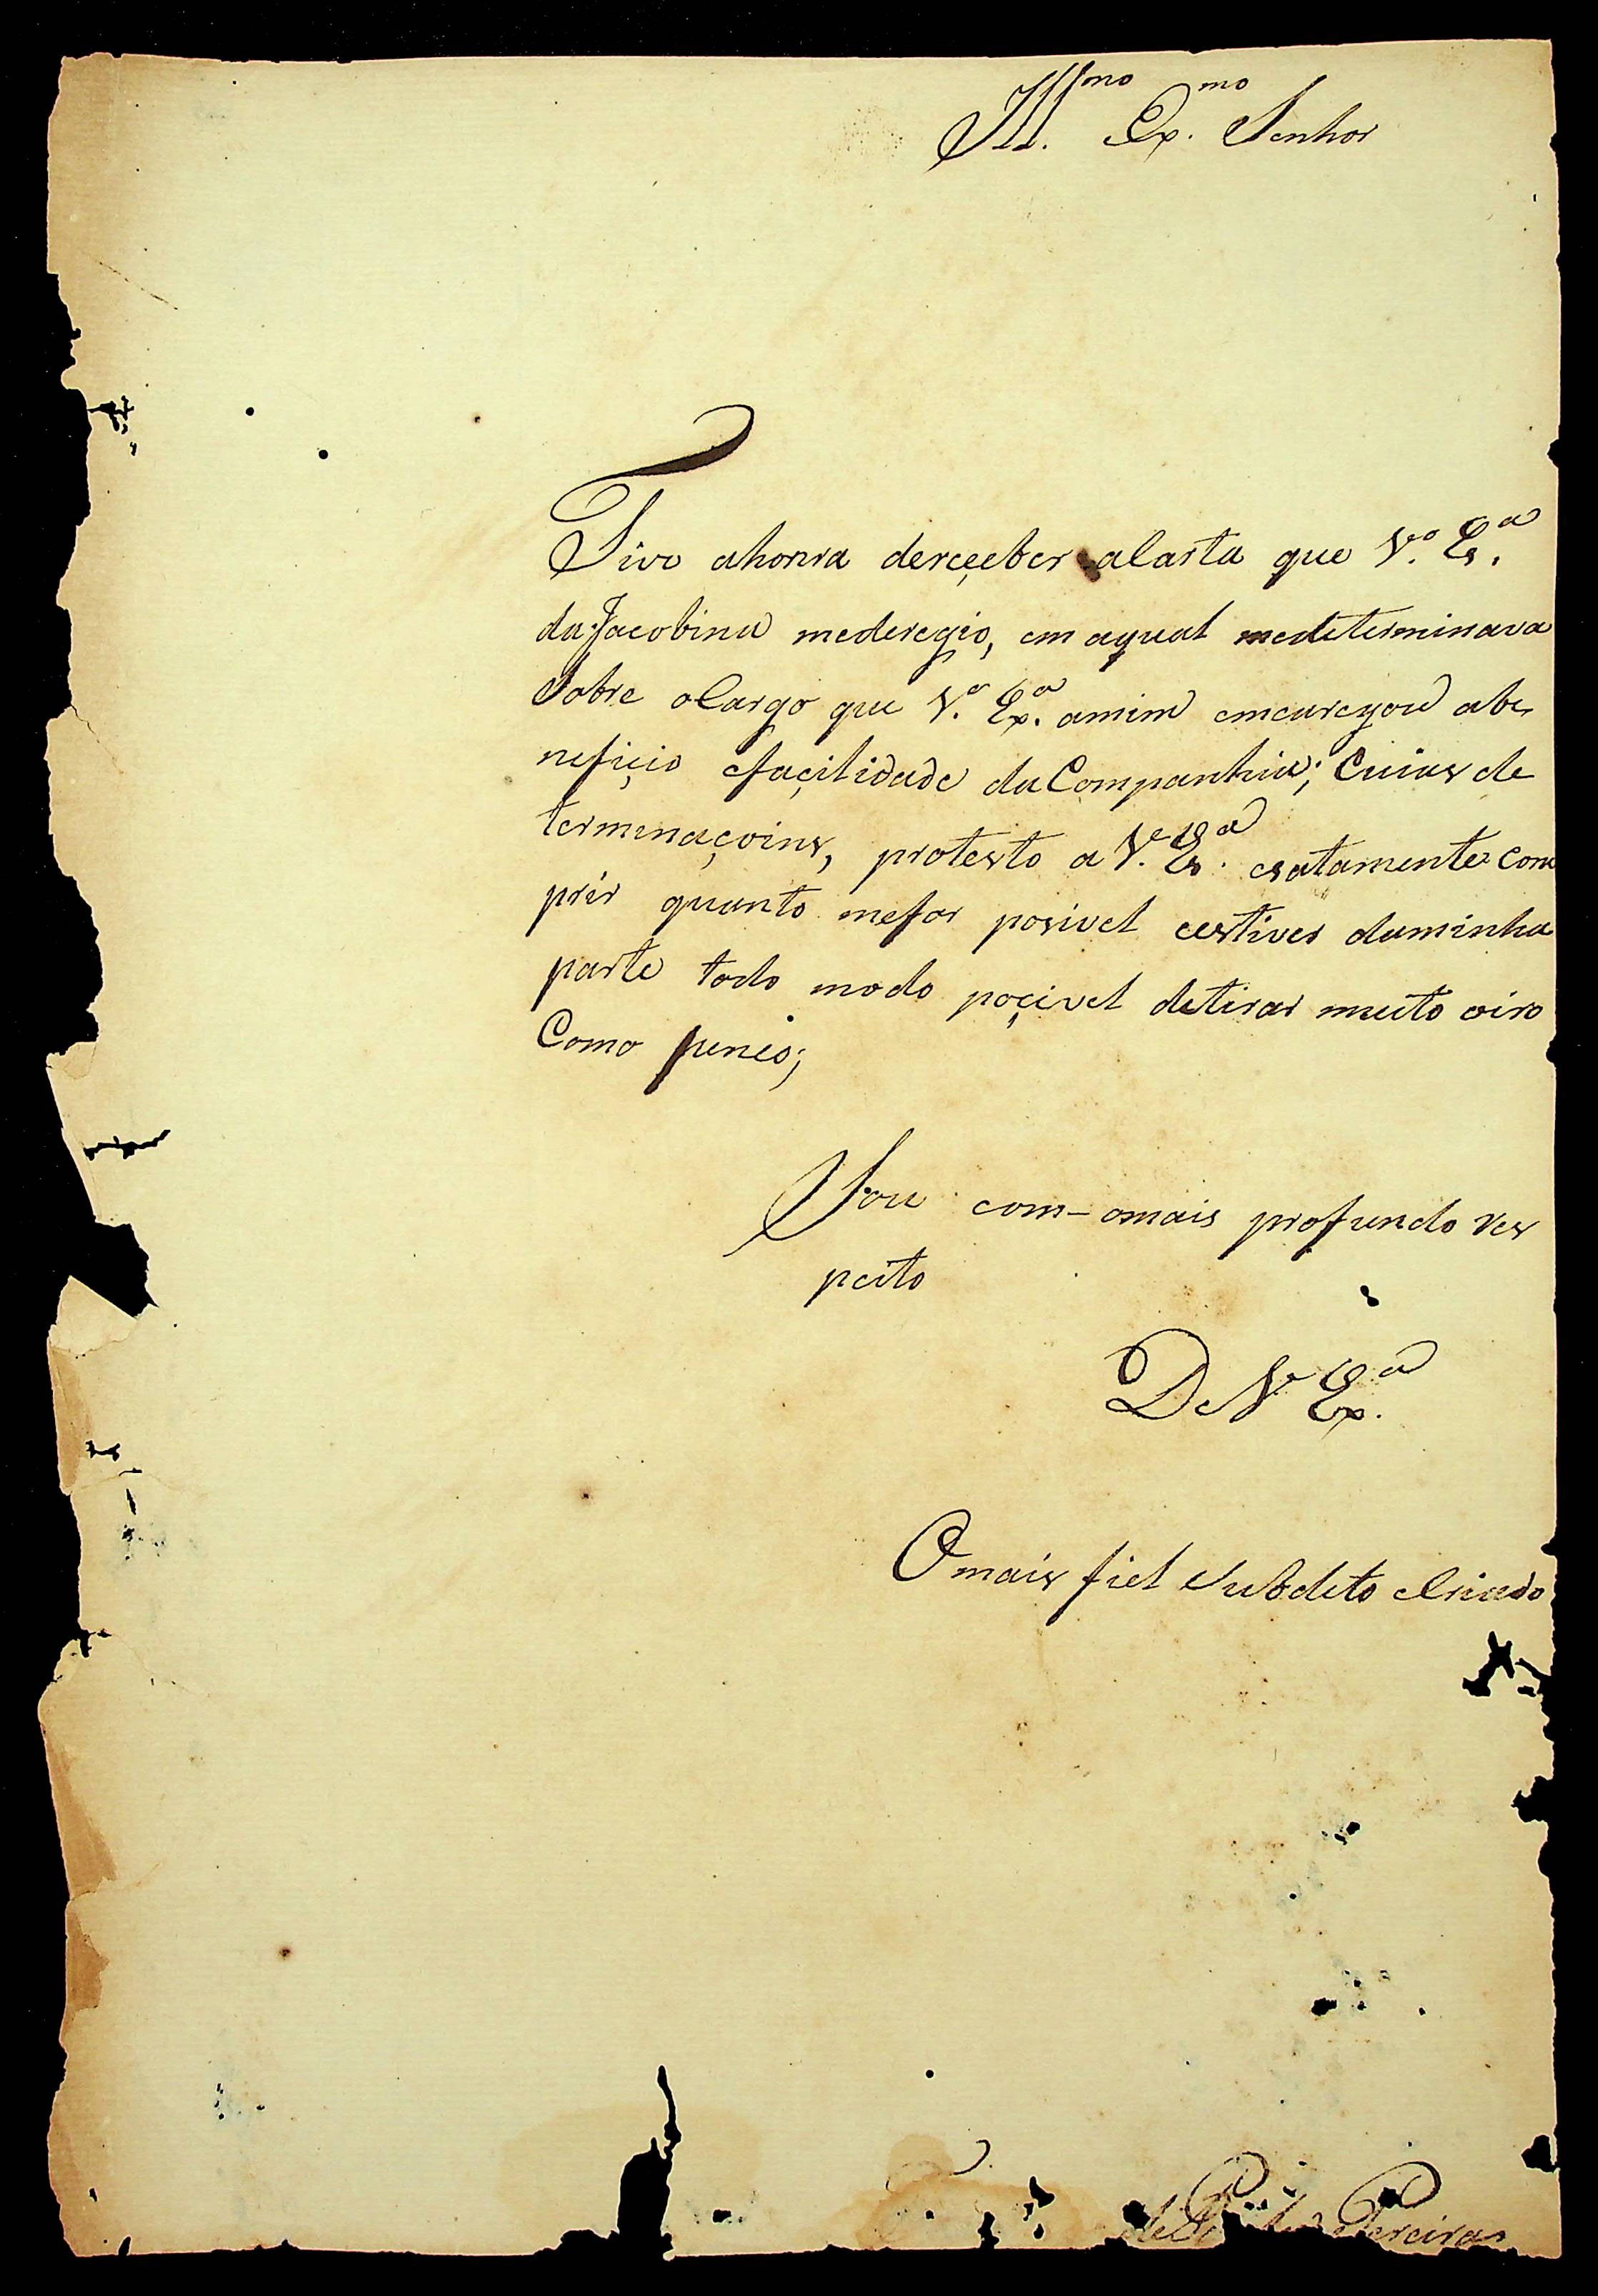 Ill.mo Ex.mo Senhor
Tive ahonra derecęeber aCarta que V.a Ex.a
da Jacobina mederegio, em aqual medeterminava
Sobre oCargo que V.a Ex.a amim emcaregou abe
nefiçio efaçilidade daCompanhia; Cuias de
terminaçoins, protesto a V.a Ex.a esatamente com
prir quanto mefor posivel eestiver daminha
parte todo modo poçivel detirar muito oiro
Como
Sou com omais profundo res
peito
De V.a Ex.a
Omais fiel Subdito eCriado
Pereira